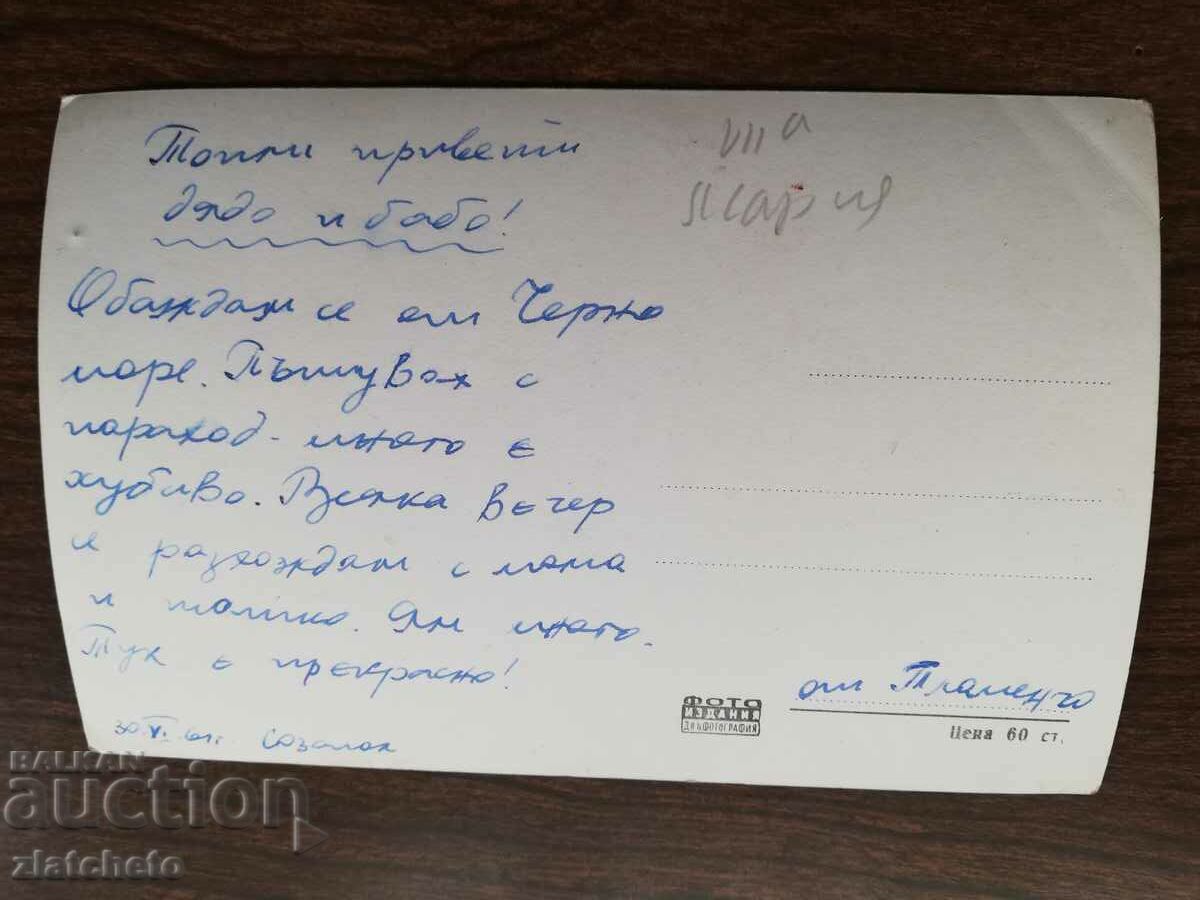 Топли привети
дядо и бабо!
Обаждам се от Черно
море. Пътувах с
параход - много е
хубаво. Всяка вечер
се разхождам с мама
и татко. Ям много.
Тук е прекрасно!
30.VI. 61г. Созопол
VII а
от Пламенчо
ФОТО
ИЗДАНИЯ
ДП ФОТОГРАФИЯ
Цена 60 ст.
BALKAN
auction
zlatcheto